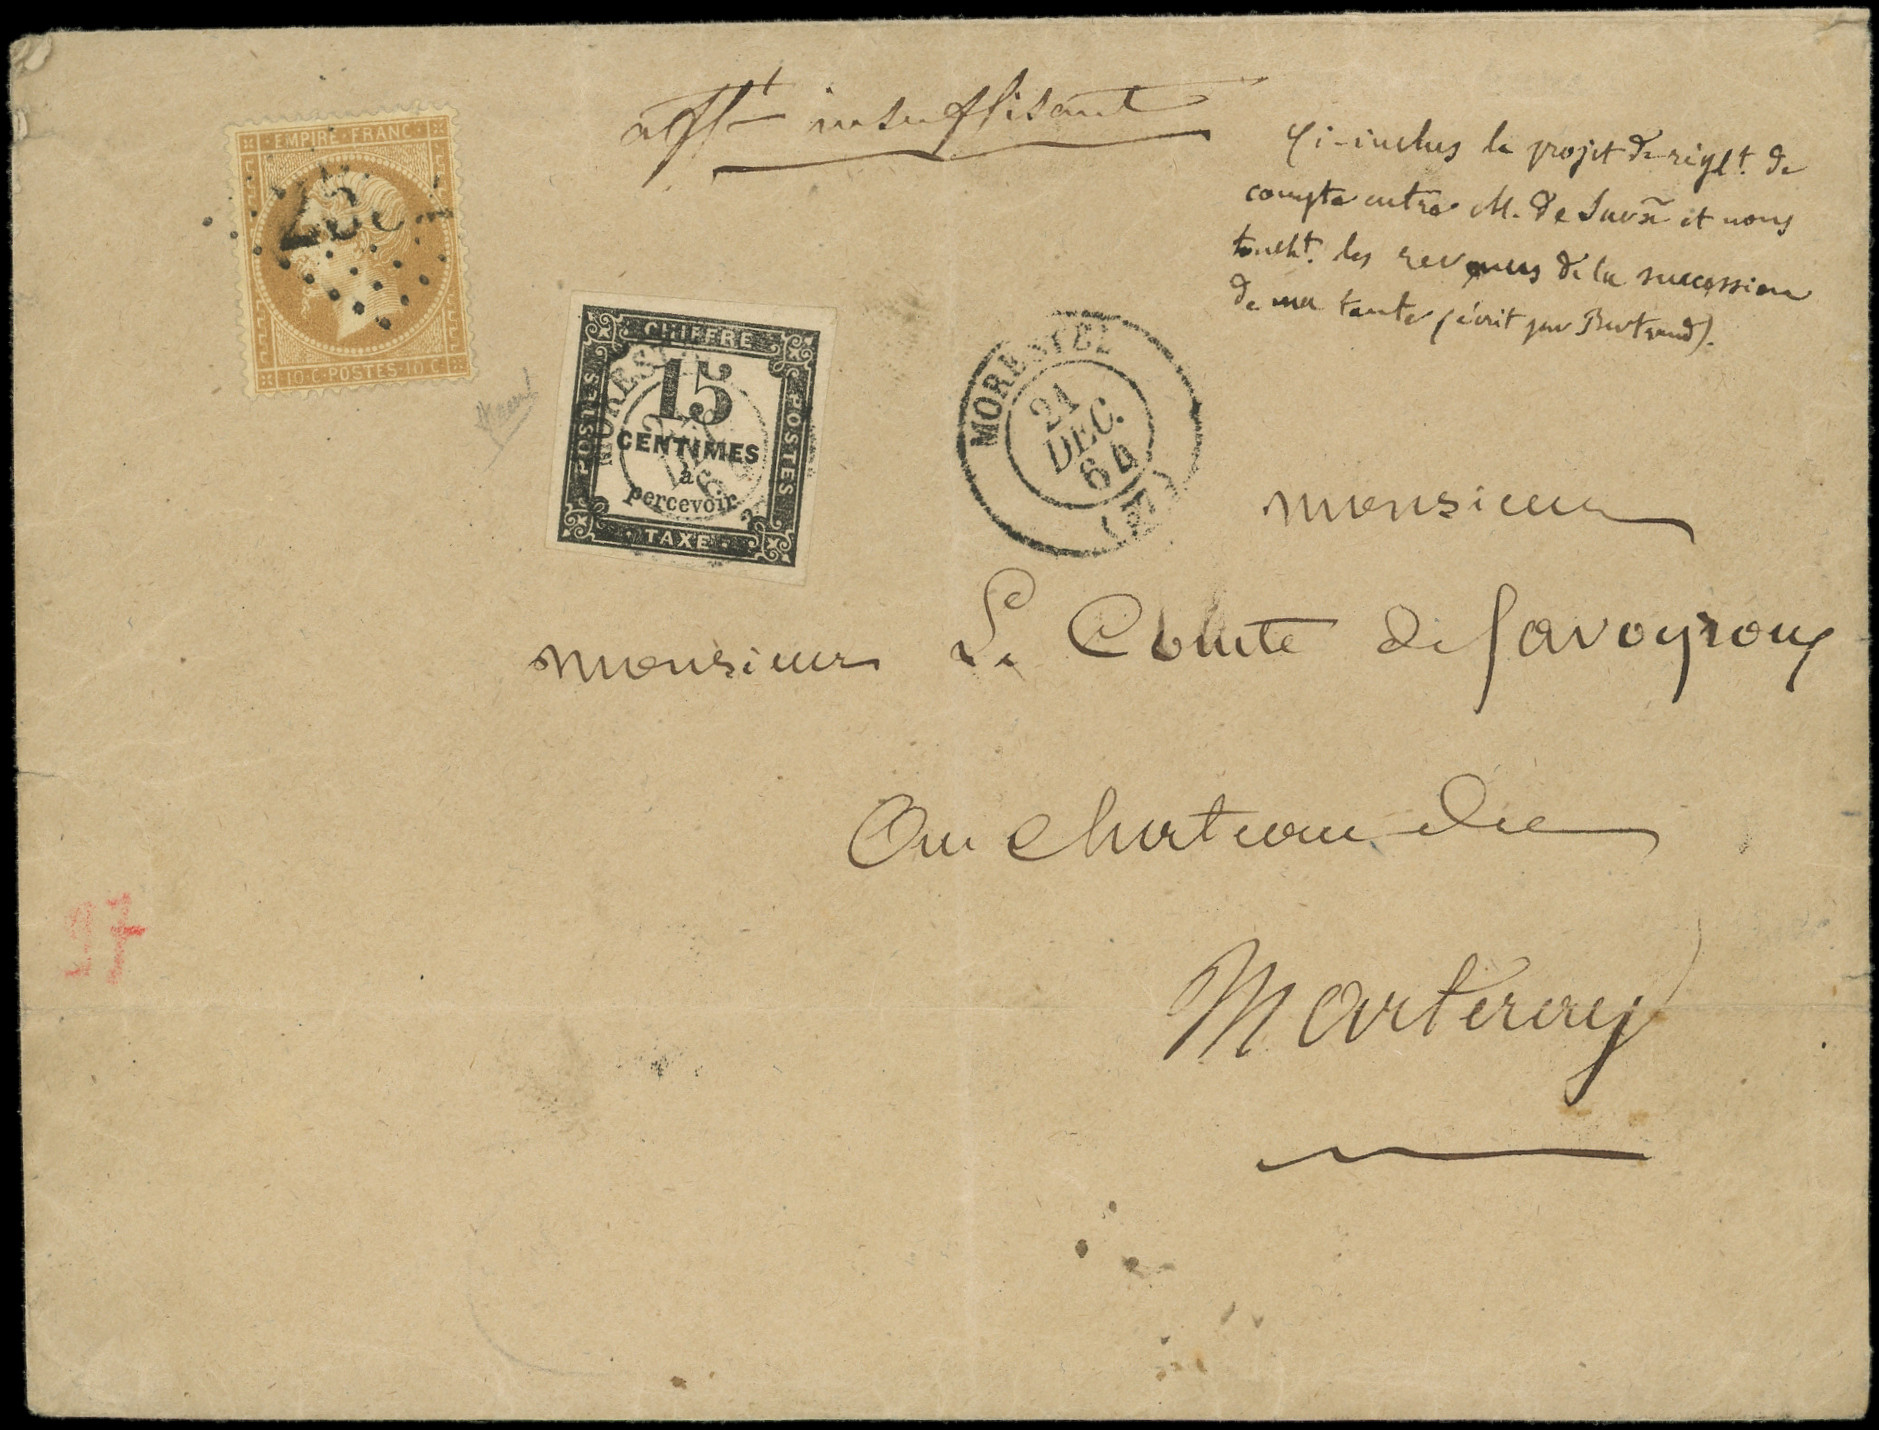 afft insuffisant
Ci-inclus le projet de règlt. de
compte entre M. de Savx et nous
toucht. les revenus de la succession
de ma tante (écrit par Bertrand).
EMPIRE · FRANC ·
10 · C · POSTES · 10 C ·
CHIFFRE
POSTES
POSTES
15
CENTIMES
à
percevoir
TAXE
MORESTEL
21
DEC.
64
(37)
monsieur
monsieur Le Comte de Savoyroux
Au chateau du
Marteray